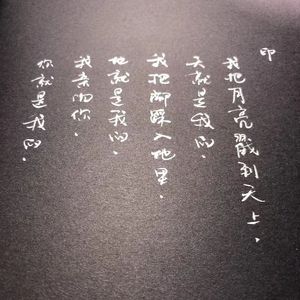 印
我把月亮戳到天上，
天就是我的。
我把腳踩入地里，
地就是我的。
我亲吻你。
你就是我的。